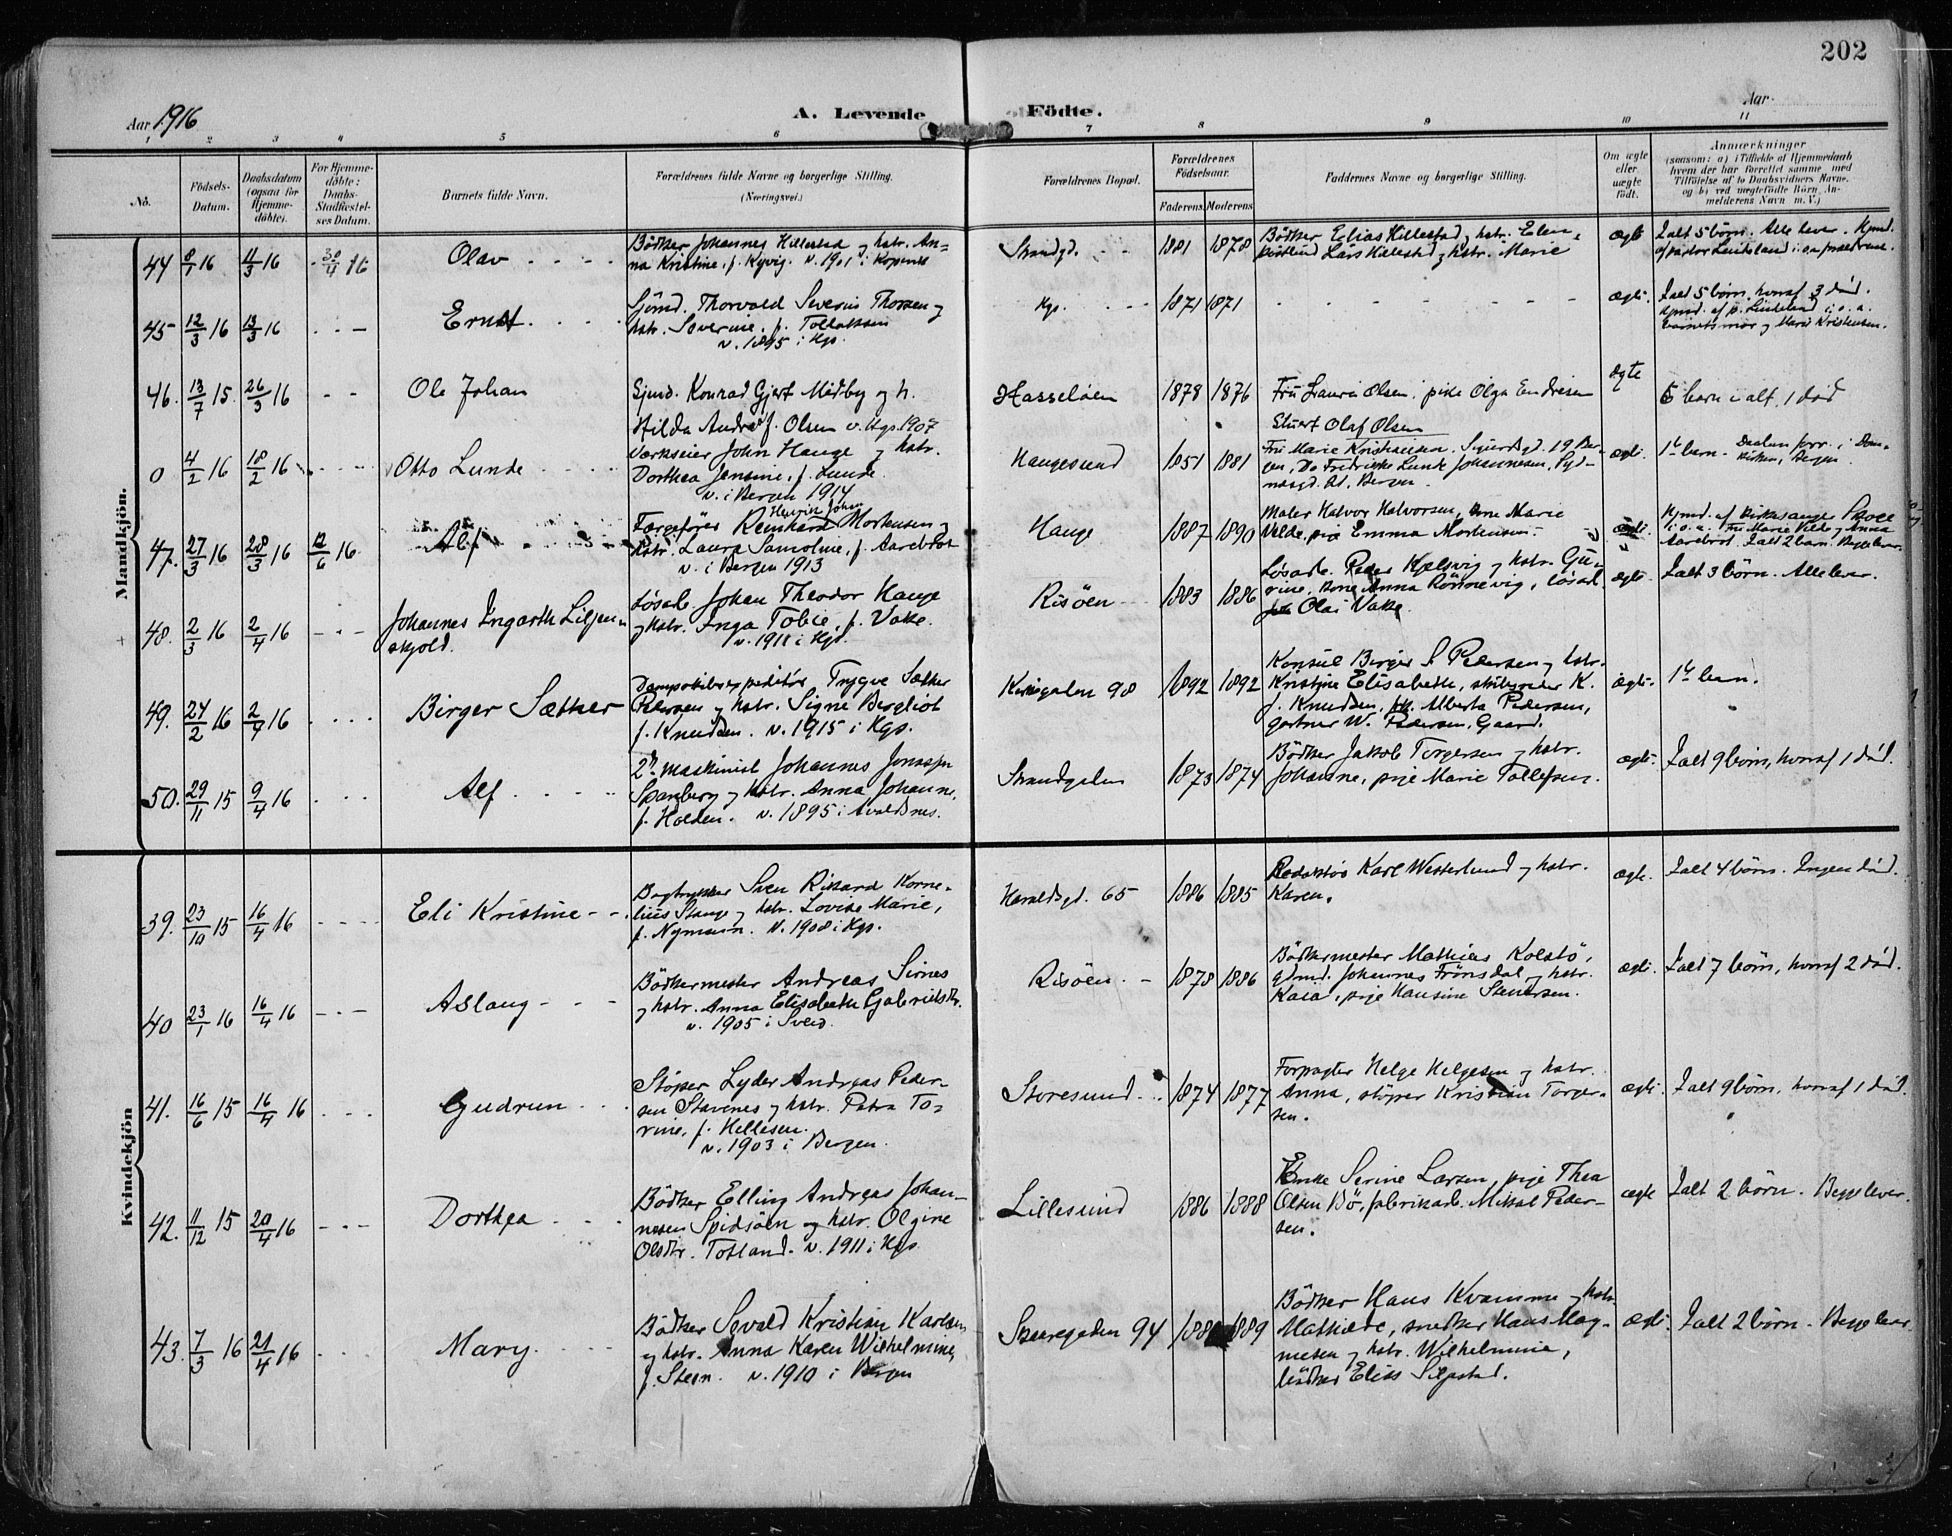 202
Aar 1916
A. Levende
Födte.
Aar
1 2 3 4 5 6 7 8 9 10 11
No.
Födsels-
Datum.
Daabsdatum
(ogsaa for
Hjemme-
döbte).
For Hjemme-
döbte:
Daabs-
Stadfæstel-
ses Datum.
Barnets fulde Navn.
Forældrenes fulde Navne og borgerlige Stilling.
(Næringsvei.)
Forældrenes Bopæl.
Forældrenes
Födselsaar.
Faderens
Moderens
Faddernes Navne og borgerlige Stilling.
Om ægte
eller
uægte
født.
Anmerkninger
(saasom: a) i Tilfælde af Hjemmedaab
hvem der har forrettet samme med
Tilföielse af to Daabsvidners Navne.
og b) ved uægtefödte Börn An-
melderens Navn m. V.)
Mandkjön.
44 8/1 16 11/3 16 30/4 16
Olav
Bödker Johannes Hillestad og hstr. An-
na Kristine, f. Kyvig. v. 1901 i
Strandgd.
1881 1878
Bödker Elias Hillestad og hstr. Elen,
Lars Hillestad og hstr. Marie
ægte
Ialt 5 börn. Alle lever. Hjmd.
af pastor Lindeland i. o. a. forældrene.
45 12/3 16 13/3 16
Ernst
Sjömd. Thorvald Severin Thorsen og
hstr. Severine, f. Tollaksen
v. 1895 i Hgs.
Hgs.
1871 1871
ægte.
Ialt 5 börn, hvoraf 3 död.
Hjmd. af p. Lindeland i. o. a.
barnets mor og Marie Kristensen.
46. 13/7 15 26/3 16
Ole Johan
Sjmd. Konrad Gjert Midby og h.
Hilda Andrea f. Olsen v. Hgs. 1907
Hasseløen
1878 1876
Fru Laura Olsen, pike Olga Endresen
Stuert Olaf Olsen
ægte
5 barn i alt, 1 död
0 4/2 16 18/2 16
Otto Lunde
Verkseier John Hauge og hstr.
Dorthea Jensine, f. Lunde.
v. i Bergen 1914
Haugesund
1851 1881
Fru Marie Kristiansen, Sigurdsgd. 19 Ber-
gen, Do Fredrikke Lunde Johannesen, Syd-
nesgd. Bergen.
ægte.
1ste barn. Daaben forr. i Dom-
kirken, Bergen
47. 27/3 16 28/3 16 12/6 16
Alf
Færgefører Reinhard Henrik Johan Mortensen og
hstr. Laura Samoline, f. Aarebrot
v. i Bergen 1913
Hauge
1887 1890
Maler Halvor Halvorsen, Marie
Velde, pige Emma Mortensen.
ægte.
Hjmd. af kirkesanger
i. o. a. Fru Marie Velde og Anna
Aarebrot. Ialt 2 barn. Begge lever.
48. 2/3 16 2/4 16
Johannes Ingarth Liljen-
skjold.
Løsarb. Johan Theodor Hauge
og hstr. Inga Tobie, f. Vakke.
v. 1911 i Hgs.
Risöen
1883 1886
Løsarb. Peder Kjelsvig og hstr. Gu-
rine, kone Anna Rönnevig, løsarb.
Olai Vakke.
ægte.
Ialt 3 börn. Alle lever.
49. 24/2 16 2/4 16
Birger Sæther
Dampskibsexpeditör Trygve Sæther
Pedersen og hstr. Signe Bergliot
f. Knudsen. v. 1915 i Hgs.
Kirkegaten 98
1892 1892
Konsul Birger S. Pedersen og hstr.
Kristine Elisabeth, skibsreder K.
J. Knudsen, frk. Alberta Pedersen,
gartner W. Pedersen, Gaard.
ægte.
1ste barn.
50. 29/11 15 9/4 16
Alf
2den maskinist Johannes Jonassen
Spanberg og hstr. Anna Johanne,
f. Holden. v. 1895 i Avaldsnes.
Strandgaten
1873 1874
Bödker Jakob Torgersen og hstr.
Johanne, pige Marie Tollefsen.
ægte.
Ialt 9 börn, hvoraf 1 död.
Kvindekjön
39. 23/10 15 16/4 16
Eli Kristine
Bogtrykker Sven Rikard Korne-
lius Stange og hstr. Lovise Marie,
f. Nymann. v. 1908 i Hgs.
Haraldsgd. 65
1886 1885
Redaktör Karl Westerlund og hstr.
Karen.
ægte.
Ialt 4 börn. Ingen död.
40 23/1 16 16/4 16
Aslaug
Bödkermester Andreas Sirnes
og hstr. Anna Elisabeth Gabrielsdtr.
v. 1905 i Sveio.
Risöen
1878 1886
Bödkermester Mathias Kolstö,
gdmd. Johannes Frönsdal og hstr.
Kaia, pige Hansine Stenersen.
ægte.
Ialt 7 börn, hvoraf 2 död.
41. 16/6 15 16/4 16
Gudrun
Støper Lyder Andreas Peder-
sen Stavenes og hstr. Petra To-
rine, f. Hellesen.
v. 1903 i Bergen.
Storesund
1874 1877
Forpagter Helge Helgesen og hstr.
Anna, støper Kristian Torger-
sen.
ægte.
Ialt 9 börn, hvoraf 1 död.
42. 11/12 15 20/4 16
Dorthea
Bödker Elling Andreas Johan-
nesen Spidsöen og hstr. Olgine
Olsdtr. Totland. v. 1911 i Hgs.
Lillesund
1886 1888
Enke Serine Larsen, pige Thea
Olsen Bö, fabrikarb. Mikal Peder-
sen.
ægte
Ialt 2 börn. Begge lever.
43. 7/3 16 21/4 16
Mary
Bödker Sevald Kristian Karlsen
og hstr. Anna Karen Wilhelmine,
f. Steen. v. 1910 i Bergen
Skaaregaden 94
1889
Bödker Hans Kvamme og hstr.
Mathilde, snedker Hans Mag-
nesen og hstr. Wilhelmine,
bödker Elias Silgstad.
ægte.
Ialt 2 börn. Begge lever.